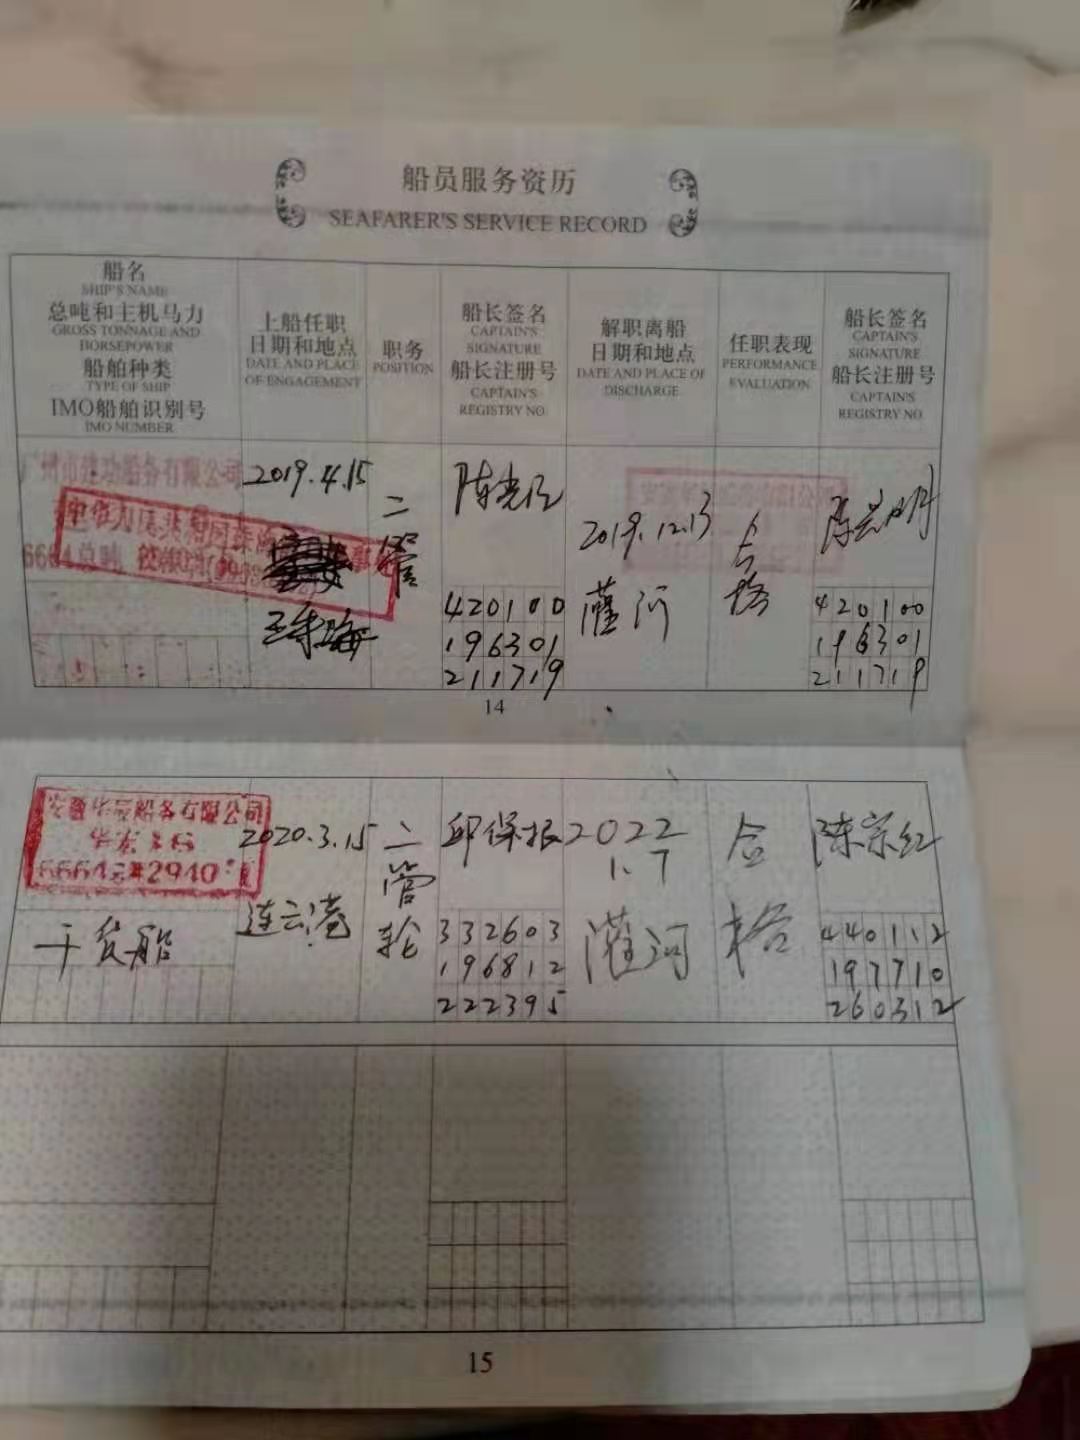 船员服务资历
SEAFARER'S SERVICE RECORD
船名
SHIP'S NAME
总吨和主机马力
GROSS TONNAGE AND
HORSEPOWER
船舶种类
TYPE OF SHIP
IMO船舶识别号
IMO NUMBER
上船任职
日期和地点
DATE AND PLACE
OF ENGAGEMENT
职务
POSITION
船长签名
CAPTAIN'S
SIGNATURE
船长注册号
CAPTAIN'S
REGISTRY NO.
解职离船
日期和地点
DATE AND PLACE OF
DISCHARGE
任职表现
PERFORMANCE
EVALUATION
船长签名
CAPTAIN'S
SIGNATURE
船长注册号
CAPTAIN'S
REGISTRY NO.
广州市建功船务有限公司
6664总吨
2019.4.15
二管
420100
196301
211719
2019.12.13
灌河
合格
420100
196301
211719
14
船务有限公司
6664
2940
干货船
2020.3.15
连云港
二管轮
邱保振
332603
196812
222395
2022
1.7
灌河
合格
陈宗红
440112
197710
260312
15